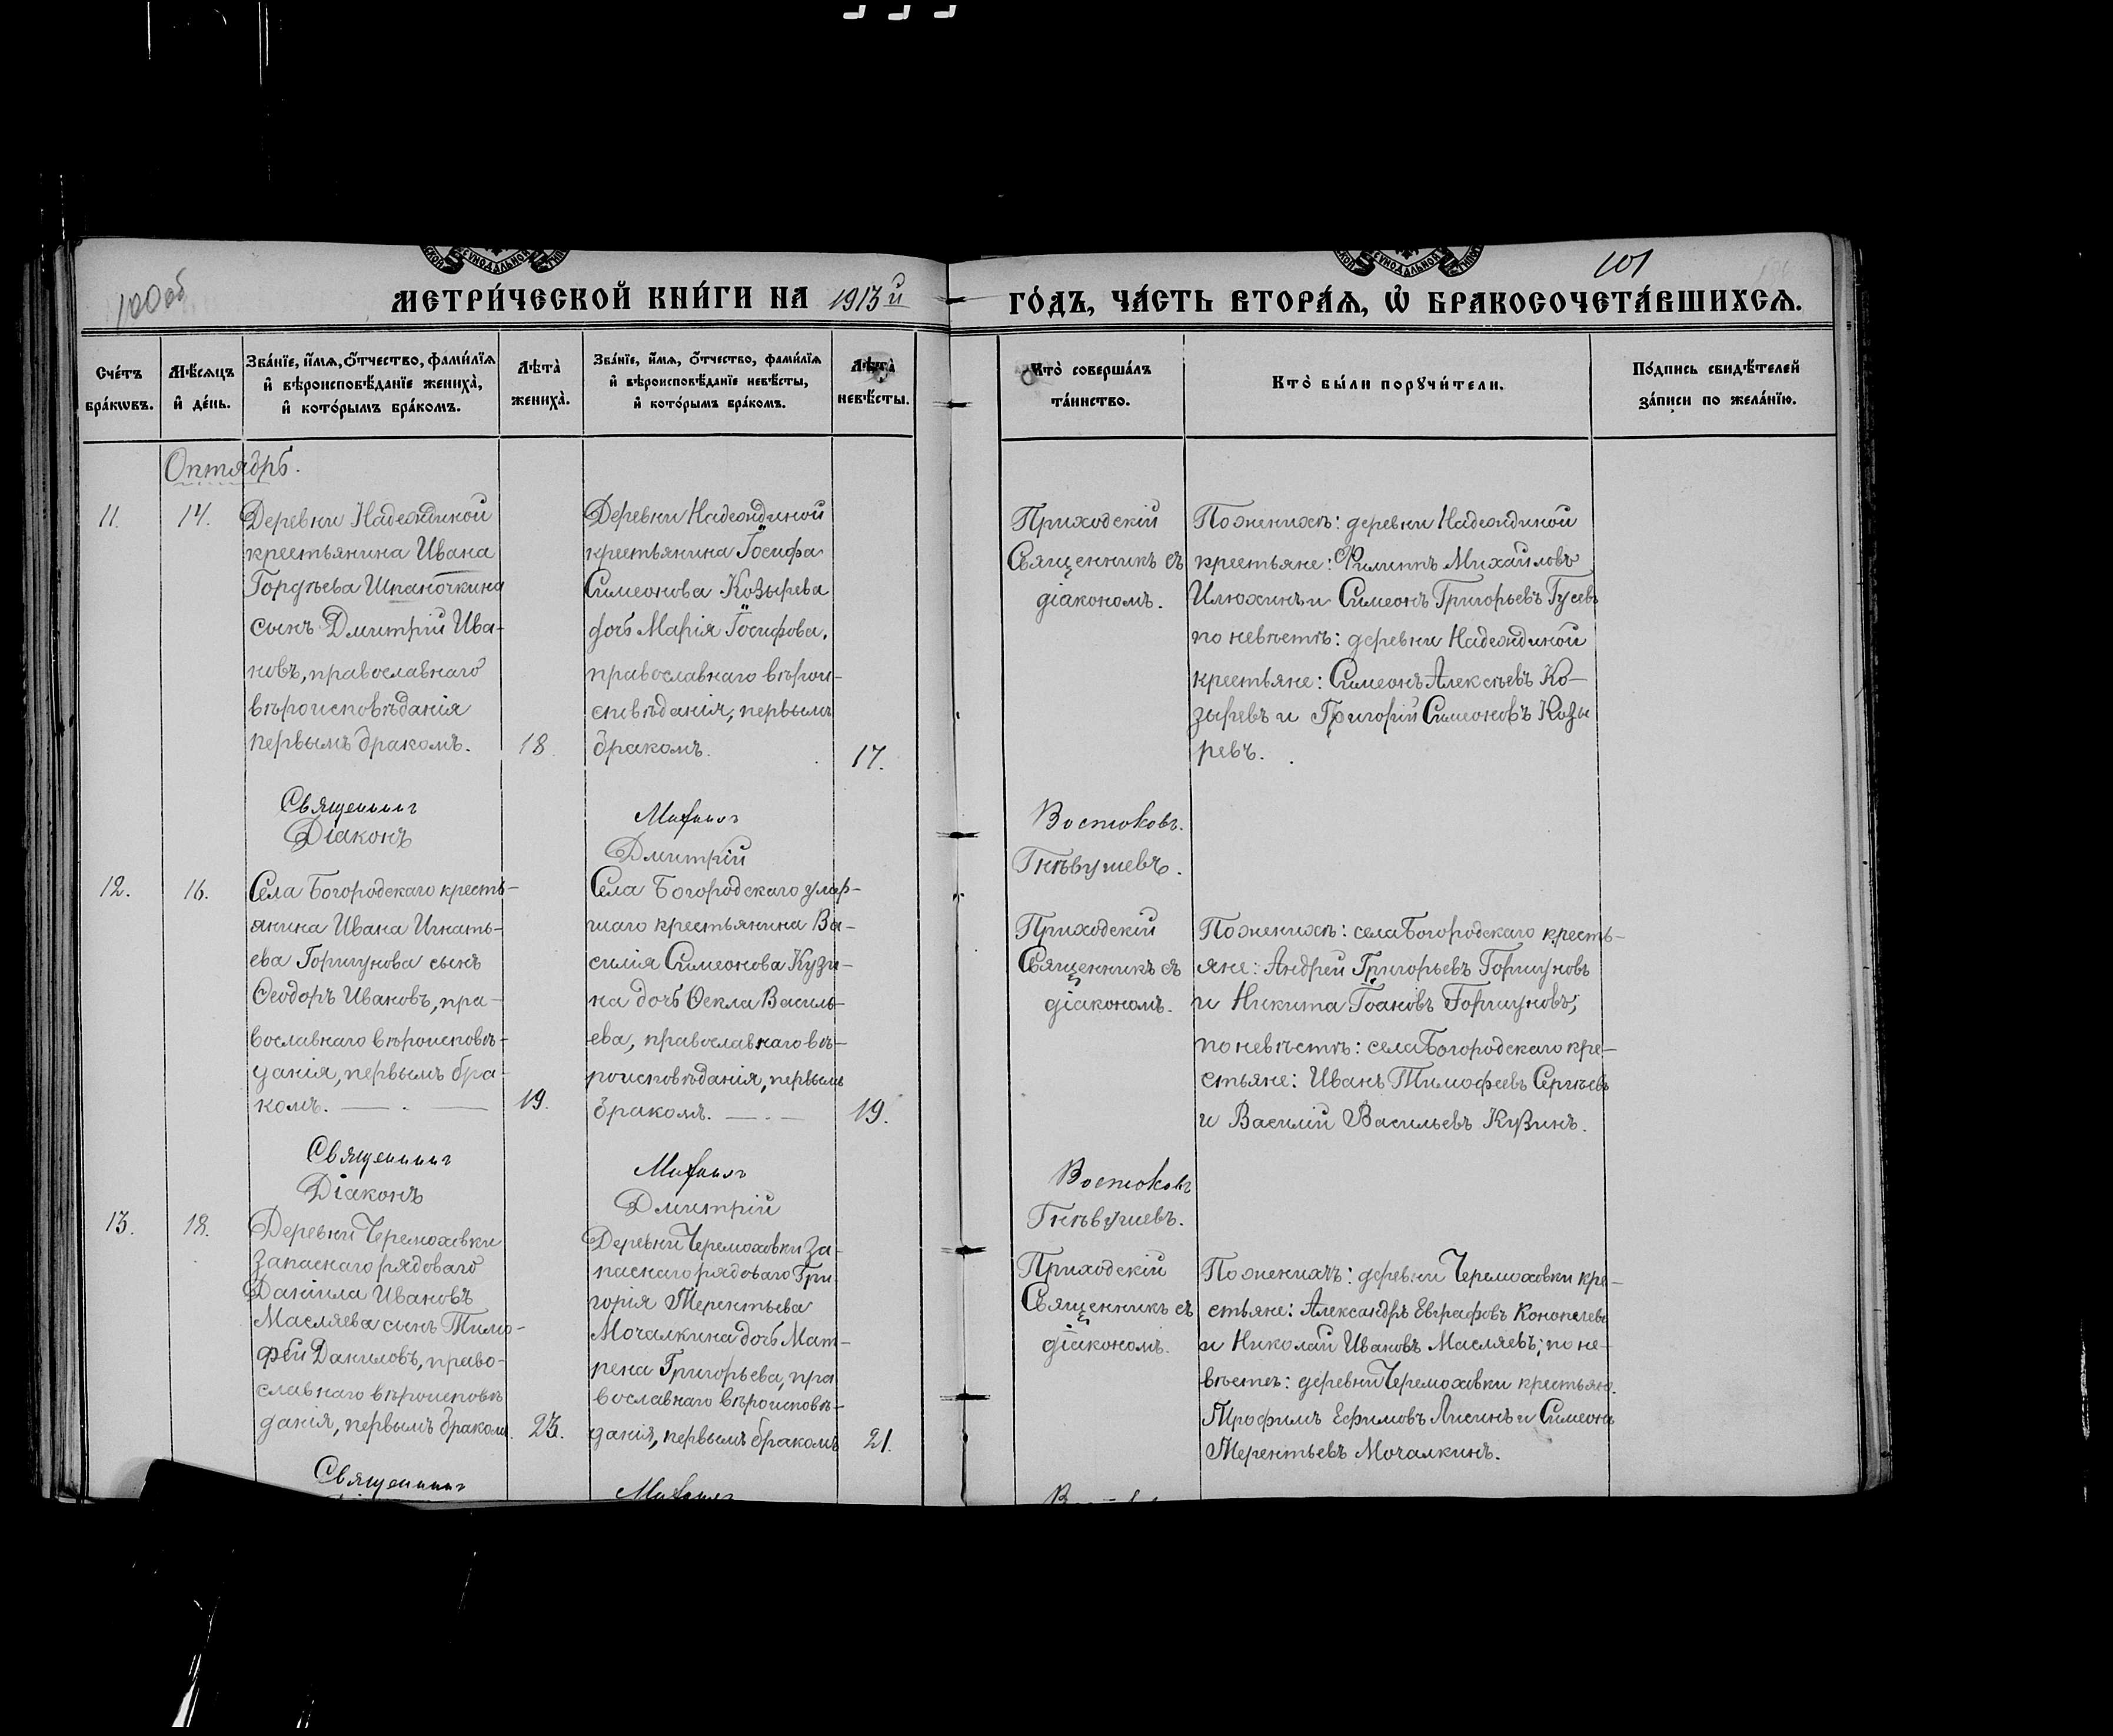 100 об
101
МЕТРИ́ЧЕСКОЙ КНИ́ГИ НА 1913 й ГО́ДЪ, ЧА́СТЬ ВТОРА́Я, Ѡ БРАКОСОЧЕТА́ВШИХСЯ.
Сче́тъ бра́кѡвъ.
Мѣ́сяцъ и҆ де́нь.
Зва́нїе, и҆́мя, ѻ҆́тчество, фами́лїя
и҆ вѣроисповѣ́данїе жениха̀,
и҆ кото́рымъ бра́комъ.
Лѣта̀ жениха̀.
Зва́нїе, и҆́мя, ѻ҆́тчество, фами́лїя
и҆ вѣроисповѣ́данїе невѣ́сты,
и҆ кото́рымъ бра́комъ.
Лѣта̀ невѣ́сты.
Кто̀ соверша́лъ
та́инство.
Кто̀ бы́ли порꙋчи́тели.
По́дпись свидѣ́телей
за́писи по жела́нїю.
Октябрь.
11.
14.
Деревни Надеждиной
крестьянина Ивана
Гордѣева Шпаночкина
сынъ Дмитрій Ива-
новъ, православнаго
вѣроисповѣданія
первымъ бракомъ.
18.
Деревни Надеждиной
крестьянина Іосифа
Симеонова Козырева
дочь Марія Іосифова,
православнаго вѣрои-
сповѣданія, первымъ
бракомъ.
17.
Приходскій
Священникъ съ
діакономъ.
По женихѣ: деревни Надеждиной
крестьяне: Филиппъ Михайловъ
Илюхинъ и Симеонъ Григорьевъ Гусевъ
по невѣстѣ: деревни Надеждиной
крестьяне: Симеонъ Алексѣевъ Ко-
зыревъ и Григорій Симеоновъ Козы
ревъ.
Священникъ Михаилъ Востоковъ.
Діаконъ Дмитрій Гнѣвушевъ.
12.
16.
Села Богородскаго кресть-
янина Ивана Игнать-
ева Горшунова сынъ
Ѳеодоръ Ивановъ, пра-
вославнаго вѣроисповѣ-
данія, первымъ бра-
комъ.
19.
Села Богородскаго умер-
шаго крестьянина Ва-
силія Симеонова Кузи-
на дочь Ѳекла Василь-
ева, православнаго вѣ-
роисповѣданія, первымъ
бракомъ.
19.
Приходскій
Священникъ съ
діакономъ.
По женихѣ: села Богородскаго кресть-
яне: Андрей Григорьевъ Горшуновъ
и Никита Іоановъ Горшуновъ;
по невѣстѣ: села Богородскаго кре-
стьяне: Иванъ Тимофеевъ Сергѣевъ
и Василій Васильевъ Кузинъ.
Священникъ Михаилъ Востоковъ
Діаконъ Дмитрій Гнѣвушевъ.
13.
18.
Деревни Черемоховки
запаснаго рядоваго
Даніила Ивановъ
Масляева сынъ Тимо-
фей Даниловъ, право-
славнаго вѣроисповѣ
данія, первымъ бракомъ.
23.
Деревни Черемоховки за-
паснаго рядоваго Гри
горія Терентьева
Мочалкина дочь Мат-
рена Григорьева, пра
вославнаго вѣроисповѣ-
данія, первымъ бракомъ
21.
Приходскій
Священникъ съ
діакономъ.
По женихѣ: деревни Черемоховки кре-
стьяне: Александръ Евграфовъ
и Николай Ивановъ Масляевъ; по не-
вѣстѣ: деревни Черемоховки крестьяне.
Трофимъ Ефимовъ Лисинъ и Симеонъ
Терентьевъ Мочалкинъ.
Священникъ Михаилъ